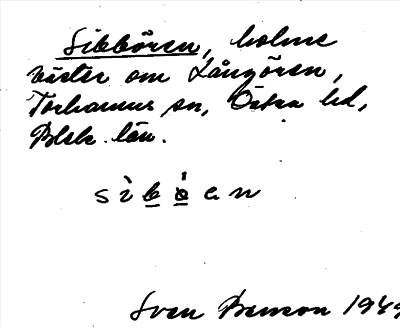 Sibbören, holme
väster om Långören,
Torhamns sn, Östra hd,
Blek. län.
sìb̲ȯ̲en
Sven Benson 1949